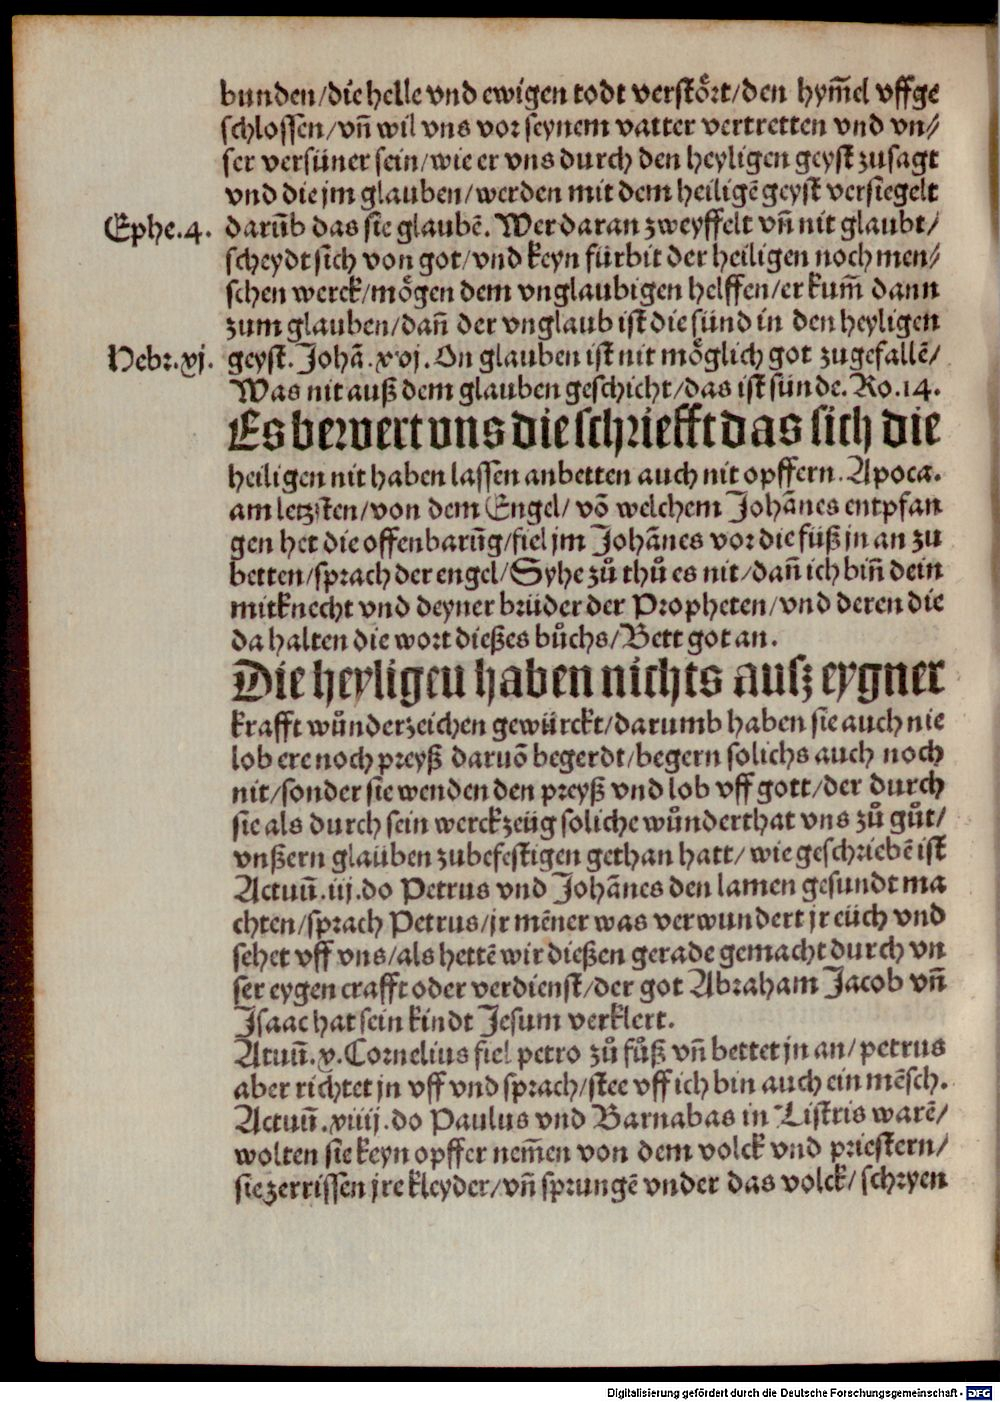 bunden/die helle vnd ewigen todt verstoͤrt/den hym̃el vffge
schlossen/vñ wil vns vor seynem vatter vertretten vnd vn⸗
ser versüner sein/wie er vns durch den heyligen geyst zusagt
vnd die jm glauben/werden mit dem heiligẽ geyst versiegelt
Ephe.4. darũb das sie glaubẽ. Wer daran zweyffelt vñ nit glaubt/
scheydt sich von got/vnd keyn fürbit der heiligen noch men⸗
schen werck/moͤgen dem vnglaubigen helffen/er kum̃ dann
zum glauben/dañ der vnglaub ist die sünd in den heyligen
Hebr.xj. geyst. Johã.xvj. On glauben ist nit moͤglich got zugefallẽ/
Was nit auß dem glauben geschicht/das ist sünde. Ro.14.
Es bewert vns die schriefft das sich die
heiligen nit haben lassen anbetten auch nit opffern. Apoca.
am letzsten/von dem Engel/ võ welchem Johãnes entpfan
gen het die offenbarũg/fiel jm Johãnes vor die füß jn an zu
betten/sprach der engel/Syhe zů thů es nit/dañ ich biñ dein
mitknecht vnd deyner brüder der Propheten/vnd deren die
da halten die wort dießes bůchs/Bett got an.
Die heyligen haben nichts ausz eygner
krafft wůnderzeichen gewürckt/darumb haben sie auch nie
lob ere noch preyß daruõ begerdt/begern solichs auch noch
nit/sonder sie wenden den preyß vnd lob vff gott/der durch
sie als durch sein werckzeüg soliche wůnderthat vns zů gůt/
vnßern glauben zubefestigen gethan hatt/ wie geschriebẽ ist
Actuũ.iij.do Petrus vnd Johãnes den lamen gesundt ma
chten/sprach Petrus/jr mẽner was verwundert jr eüch vnd
sehet vff vns/als hettẽ wir dießen gerade gemacht durch vn
ser eygen crafft oder verdienst/der got Abraham Jacob vñ
Jsaac hat sein kindt Jesum verklert.
Atuũ.x.Cornelius fiel petro zů fůß vñ bettet jn an/petrus
aber richtet jn vff vnd sprach/stee vff ich bin auch ein mẽsch.
Actuũ.xiiij.do Paulus vnd Barnabas in Listris warẽ/
wolten sie keyn opffer nem̃en von dem volck vnd priestern/
sie zerrissen jre kleyder/vñ sprungẽ vnder das volck/schryen
Digitalisierung gefördert durch die Deutsche Forschungsgemeinschaft - DFG